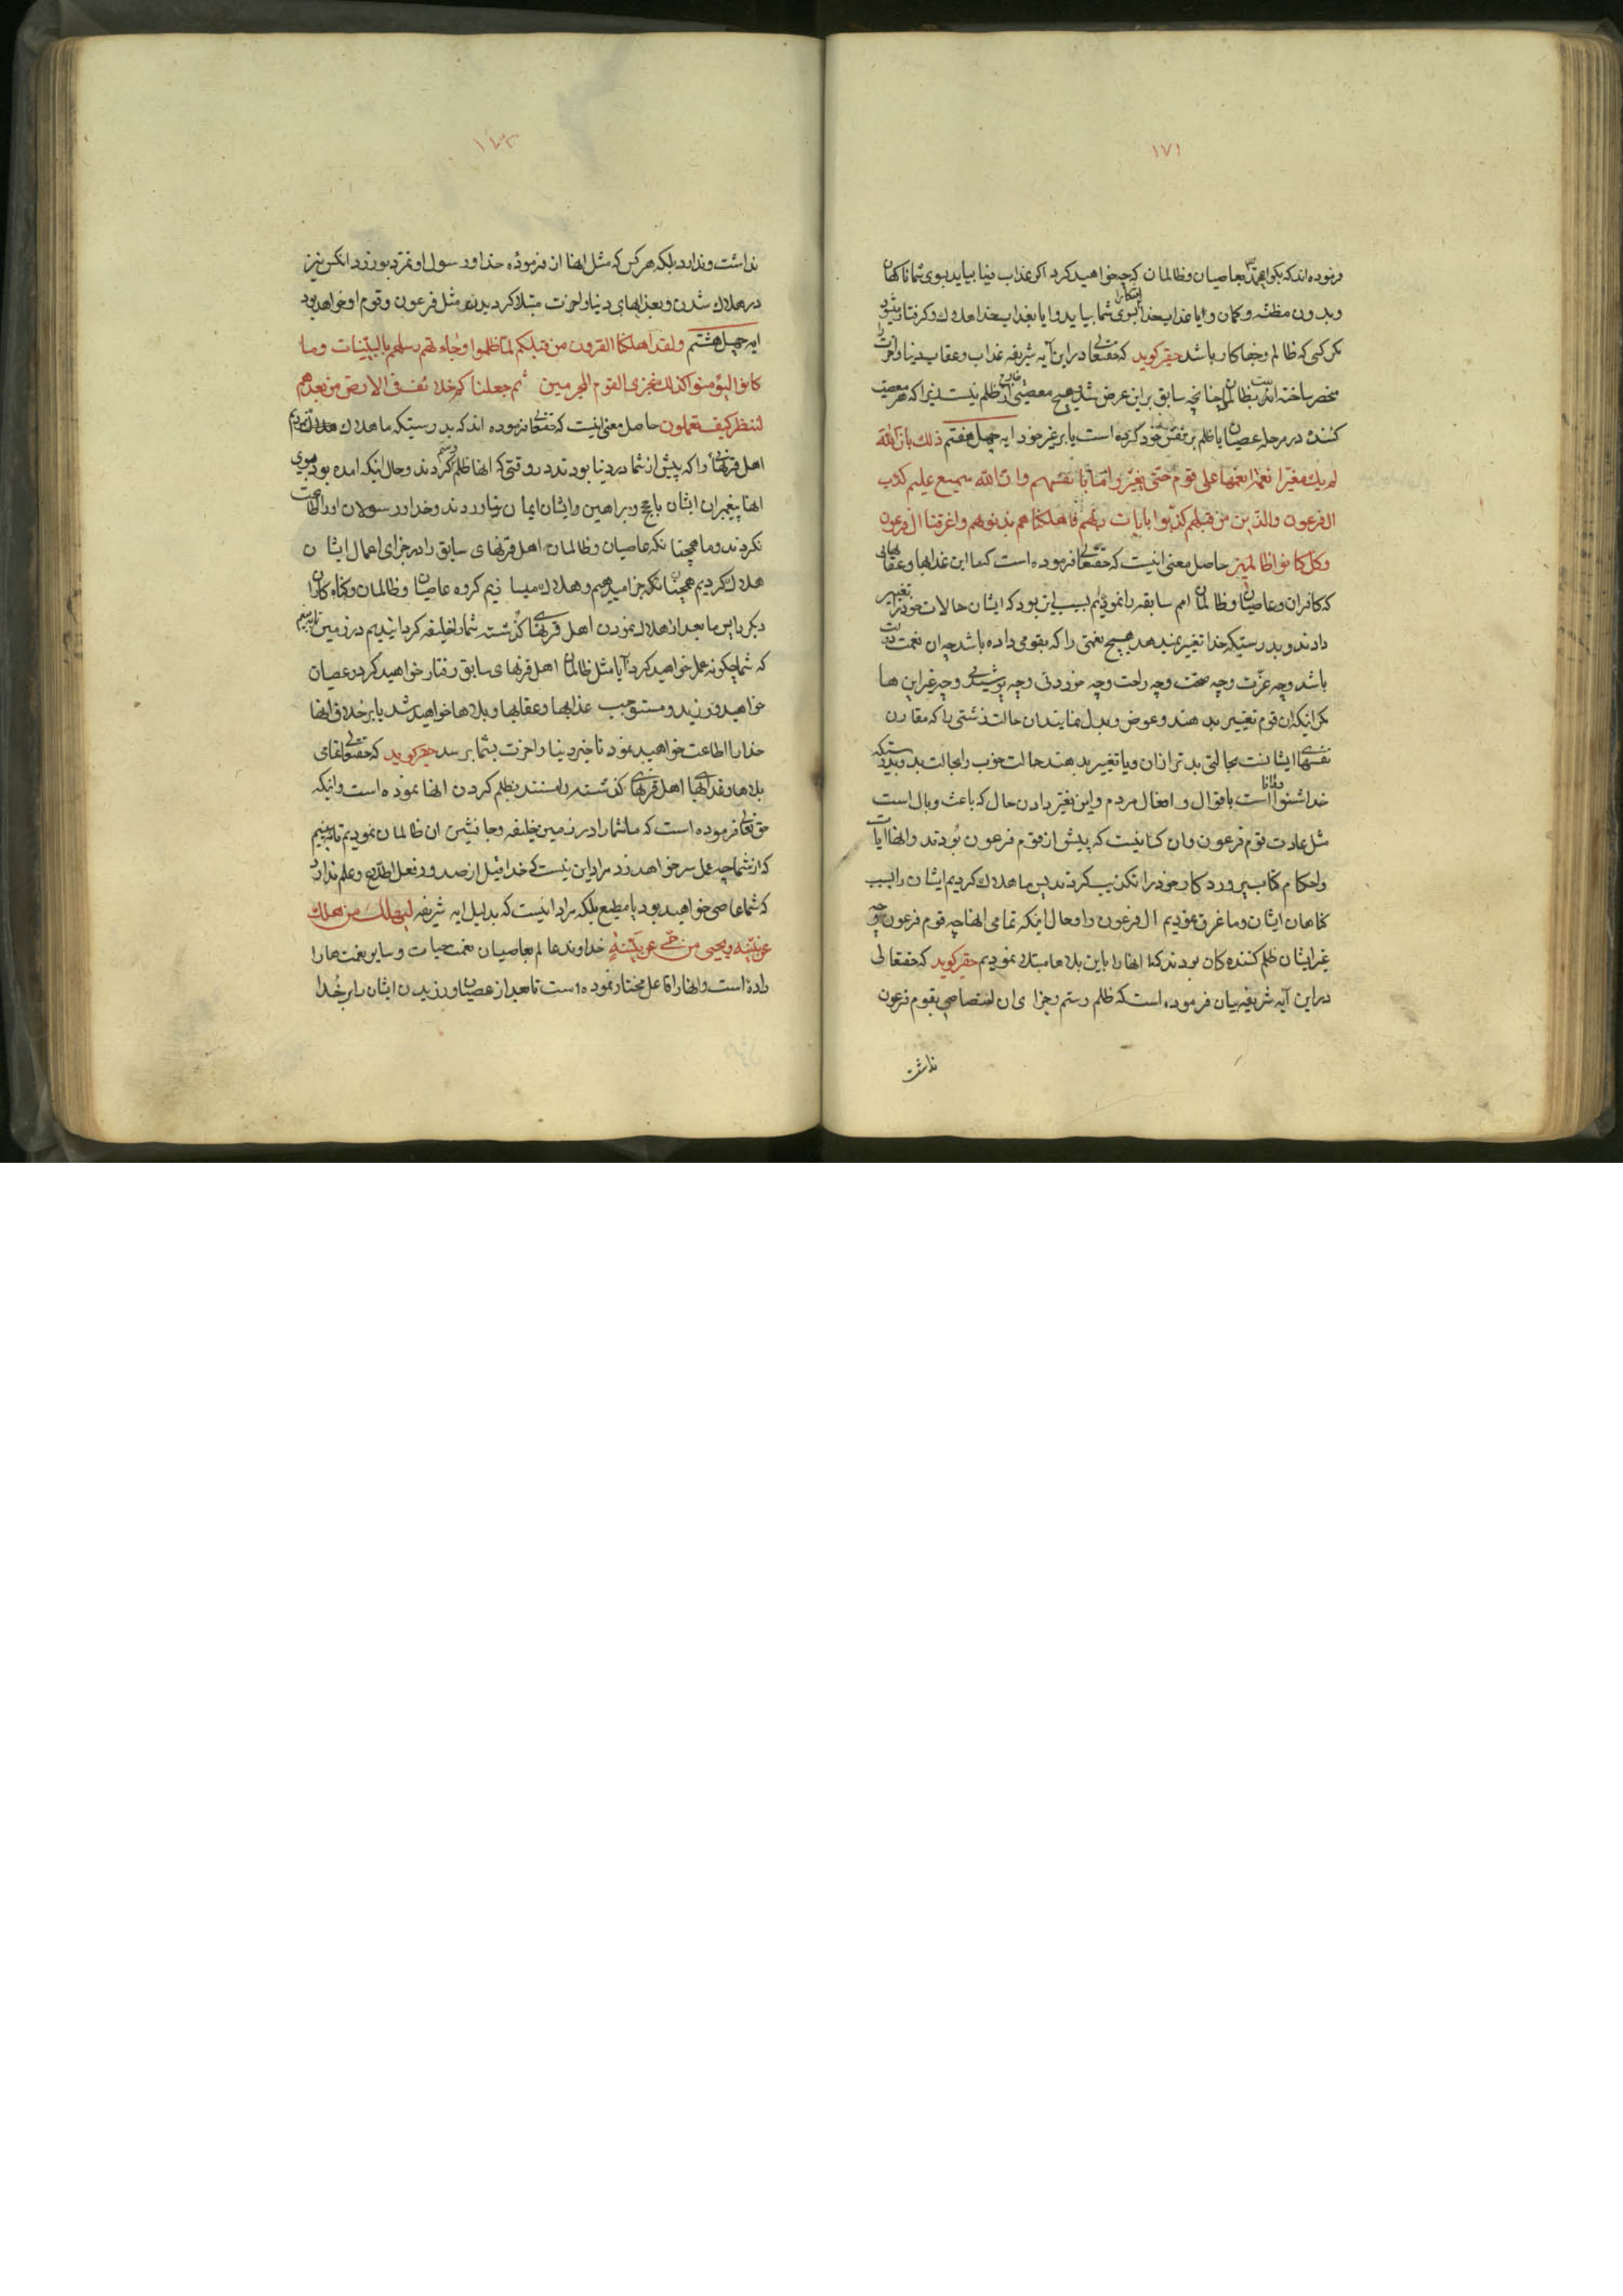 ١٧١
فرموده اند که بکو ای محمد بعاصیان و ظالمان که چه خواهید کرد اکر عذاب دنیا بیاید بسوی شما ناکهان
و بدون مظنه و کمان و ایا عذاب خدا اشکارا بسوی شما بیاید و ایا بعذاب خدا هلاك و کرفتار میشود
مکر کسی که ظالم و جفا کار باشد حقیر کوید که حقتعالی در این آیه شریفه عذاب و عقاب دنیا و اخرت را
منحصر ساخته اند بظالمان چنانچه سابق بر این عرض شد هیچ معصیتی خالی از ظلم نیست زیرا که هر معصیت
کننده در مرحله عصیان یا ظلم بر نفس خود کرده است یا بر غیر خود ایه چهل هفتم ذلك بان الله
لم یك مغیرا نعمة انعمها علی قوم حتی یغیروا ما بانفسهم وان الله سمیع علیم کداب
ال فرعون والذین من قبلهم کذبوا بایات ربهم فاهلکناهم بذنوبهم واغرقنا ال فرعون
وکل کانوا ظالمین حاصل معنی اینست که حقتعالی فرموده است که ما این عذابها و عقابهائی
که کافران و عاصیان و ظالمان امم سابقه را نمودیم بسبب این بود که ایشان حالات خود را تغییر
دادند و بدرستیکه خدا تغییر نمیدهد هیچ نعمتی را که بقومی داده باشد چه ان نعمت دولت
باشد و چه عزّت و چه صحت و چه راحت و چه خوردنی و چه پوشیدنی و چه غیر این ها
مکر اینکه ان قوم تغییر بدهند و عوض و بدل نمایند ان حالت زشتی را که مقارن
نفسهای ایشانست بحالتی بدتر از ان و یا تغییر بدهند حالت خوب را بحالت بد و بدرستیکه
خدا شنوا و دانا است باقوال و افعال مردم و این تغییر دادن حال که باعث وبال است
مثل عادت قوم فرعون و ان کسانیست که پیش از قوم فرعون بودند و انها ایات
و احکام کتاب پروردکار خود را تکذیب کردند پس ما هلاك کردیم ایشان را بسبب
کناهان ایشان و ما غرق نمودیم ال فرعون را و حال اینکه تمامی انها چه قوم فرعون و چه
غیر ایشان ظلم کننده کان بودند که ما انها را باین بلاها مبتلا نمودیم حقیر کوید که حقتعالی
در این آیه شریفه بیان فرموده است که ظلم و ستم و جزای ان اختصاصی بقوم فرعون
نداشت
١٧٢
نداشت و ندارد بلکه هر کس که مثل انها از فرموده خدا و رسول او تمرد بورزد انکس نیز
در هلاك شدن و بعذابهای دنیا و اخرت مبتلا کردیدن مثل فرعون و قوم او خواهد بود
ایه چهل هشتم ولقد اهلکنا القرون من قبلکم لما ظلموا وجاءتهم رسلهم بالبینات وما
کانوا لیؤمنوا کذلك نجزی القوم المجرمین ثم جعلناکم خلائف فی الارض من بعدهم
لننظر کیف تعملون حاصل معنی اینست که حقتعالی فرموده اند که بدرستیکه ما هلاك نمودیم
اهل قرنهائی را که پیش از شما در دنیا بودند در وقتی که انها ظلم و ستم کردند و حال اینکه امده بود بسوی
انها پیغمبران ایشان با حجج و براهین و ایشان ایمان نیاوردند و خدا و رسولان او را اطاعت
نکردند و ما همچنانکه عاصیان و ظالمان اهل قرنهای سابق را در جزای اعمال ایشان
هلاك کردیم همچنانکه جزا میدهیم و هلاك میسازیم کروه عاصیان و ظالمان و کناه کاران
دیکر را پس ما بعد از هلاك نمودن اهل قرنهای کذشته شما را خلیفه کردانیدیم در زمین تا ببینیم
که شما چکونه عمل خواهید کرد آیا مثل ظالمان اهل قرنهای سابق رفتار خواهید کرد و عصیان
خواهید ورزید و مستوجب عذابها و عقابها و بلاها خواهید شد یا بر خلاف انها
خدا را اطاعت خواهید نمود تا خیر دنیا و اخرت بشما برسد حقیر کوید که حقتعالی تمامی
بلاها و عذابهای اهل قرنهای کذشته را مستند بظلم کردن انها نموده است و اینکه
حق تعالی فرموده است که ما شما را در زمین خلیفه و جانشین ان ظالمان نمودیم تا ببینیم
که از شما چه عمل سر خواهد زد مراد این نیست که خدا قبل از صدور فعل اطلاع و علم ندارد
که شما عاصی خواهید بود یا مطیع بلکه مراد اینست که بدلیل ایه شریفه لیهلك من هلك
عن بینه ویحیی من حی عن بینه خداوند عالم بعاصیان نعمت حیات و سایر نعمت ها را
داده است و انها را فاعل مختار نموده است تا بعد از عصیان ورزیدن ایشان را بر خدا